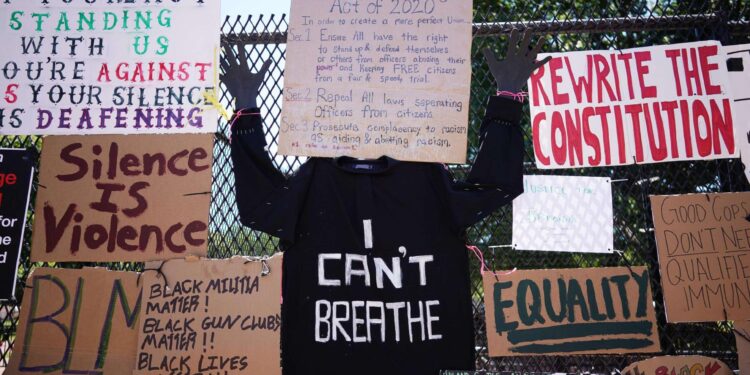 STANDING
WITH US
YOU'RE AGAINST
US YOUR SILENCE
IS DEAFENING
Silence
IS
Violence
BLM
BLACK MILITIA
MATTER!!
BLACK GUN CLUBS
MATTER!!
BLACK LIVES
Act of 2020
In order to create a more perfect Union,
Sec 1 Ensure All have the right
to stand up & defend themselves
or others from officers abusing their
power and Keeping FREE citizens
from a fair & speedy trial.
Sec 2 Repeal All laws seperating
Officers from citizens.
Sec 3 Prosecute complacency to racism
as aiding & abuting racism.
I
CAN'T
BREATHE
REWRITE THE
CONSTITUTION
Justice for
EQUALITY
GOOD COPS
DON'T NEED
QUALIFIED
IMMUNI
BLACK